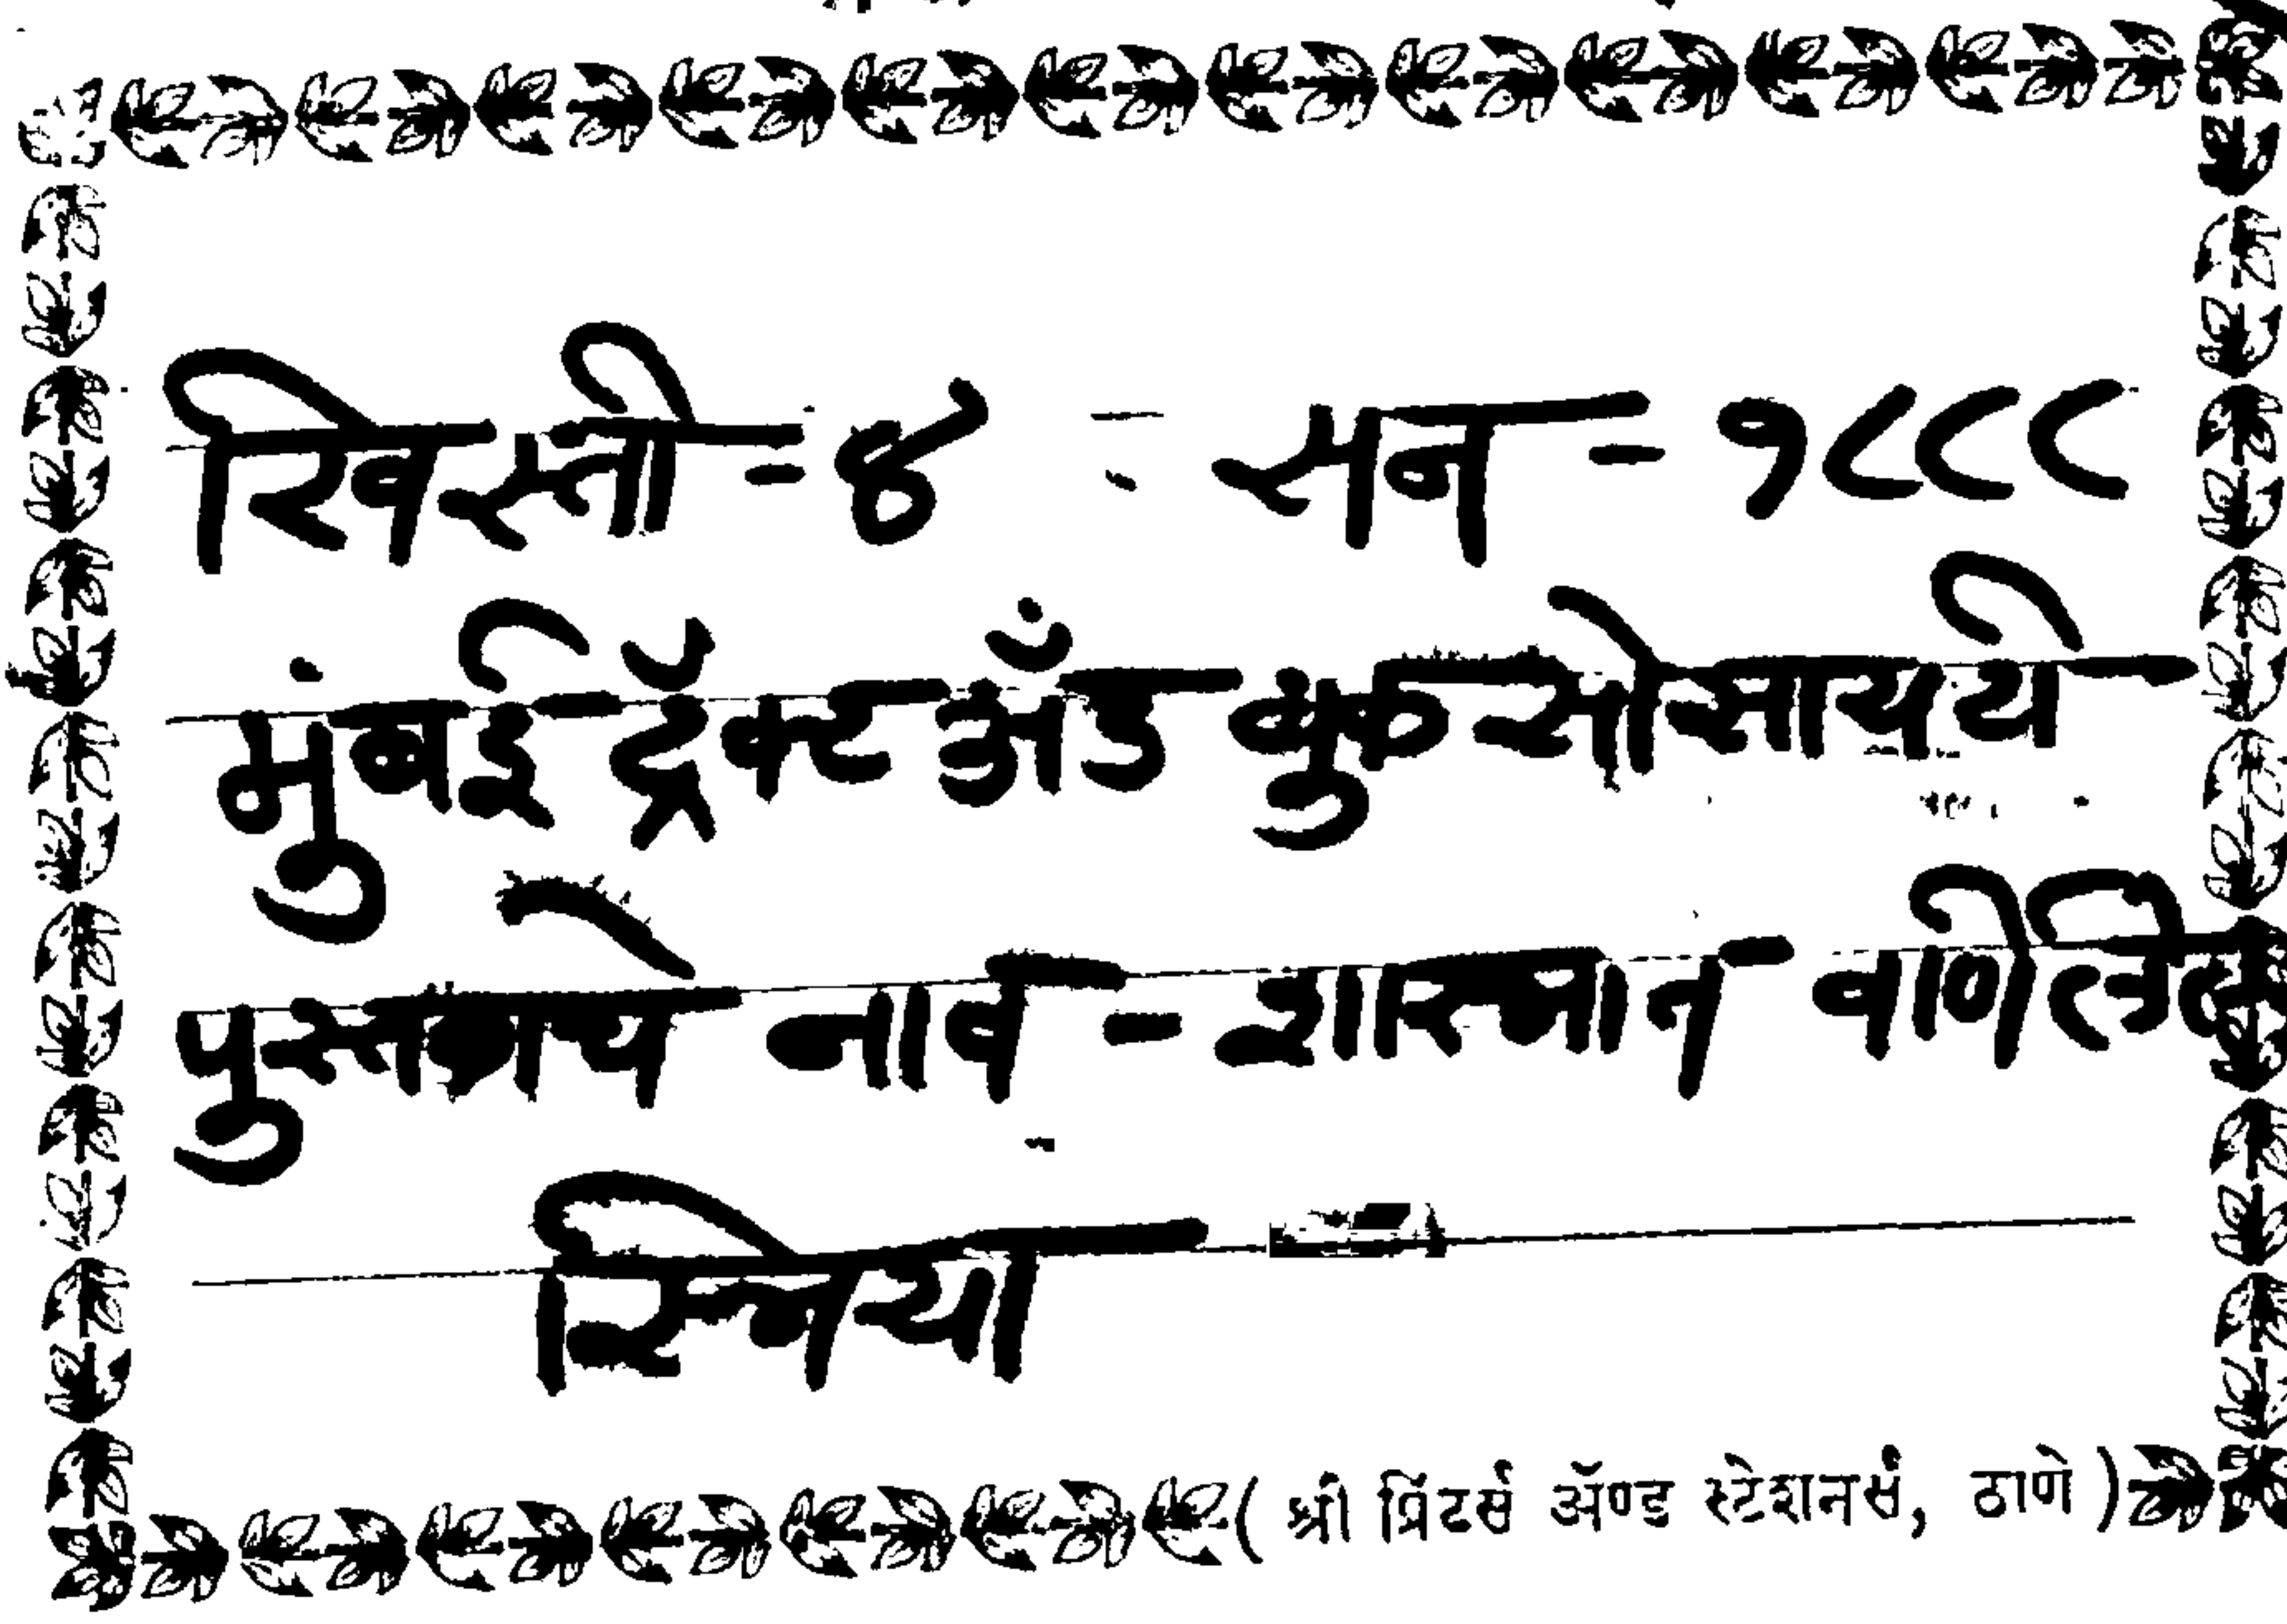 ख्रिस्ती - ४ : सन - १८८८
मुंबई ट्रॅक्ट अँड बुक सोसायटी
पुस्तकाचे नाव - शास्त्रात वर्णिलेल्या
स्त्रिया
( श्री प्रिंटर्स ॲण्ड स्टेशनर्स, ठाणे )